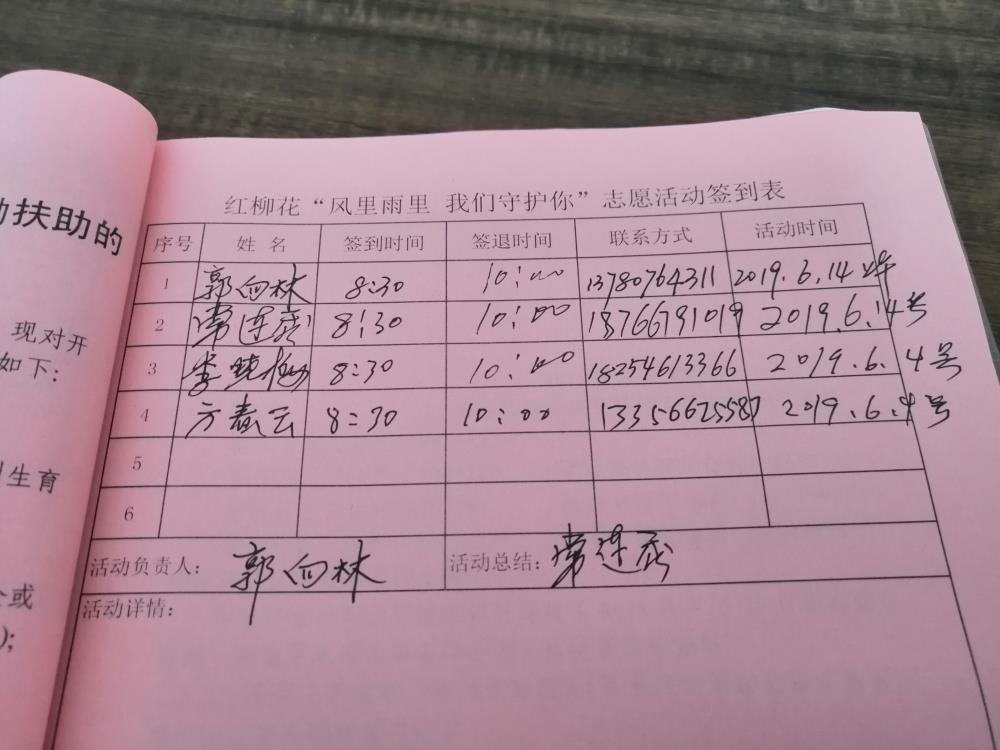 动扶助的
现对开
如下：
生育
全或
);
红柳花“风里雨里 我们守护你”志愿活动签到表
序号 姓 名 签到时间 签退时间 联系方式 活动时间
1 郭向林 8:30 10:00 13780764311 2019.6.14
2 常连 8:30 10:00 13766791019 2019.6.14号
3 李 8:30 10:00 18254613366 2019.6. 4号
4 方春云 8:30 10:00 13356625587 2019.6.4号
5
6
活动负责人： 郭向林 活动总结： 常连
活动详情：